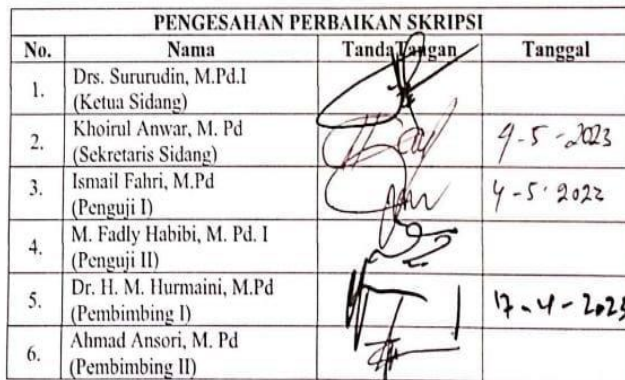 PENGESAHAN PERBAIKAN SKRIPSI
No. Nama TandaTangan Tanggal
1. Drs. Sururudin, M.Pd.I
(Ketua Sidang)
2. Khoirul Anwar, M. Pd
(Sekretaris Sidang) 4-5-2023
3. Ismail Fahri, M.Pd
(Penguji I) 4-5-2022
4. M. Fadly Habibi, M. Pd. I
(Penguji II)
5. Dr. H. M. Hurmaini, M.Pd
(Pembimbing I) 17-4-2023
6. Ahmad Ansori, M. Pd
(Pembimbing II)